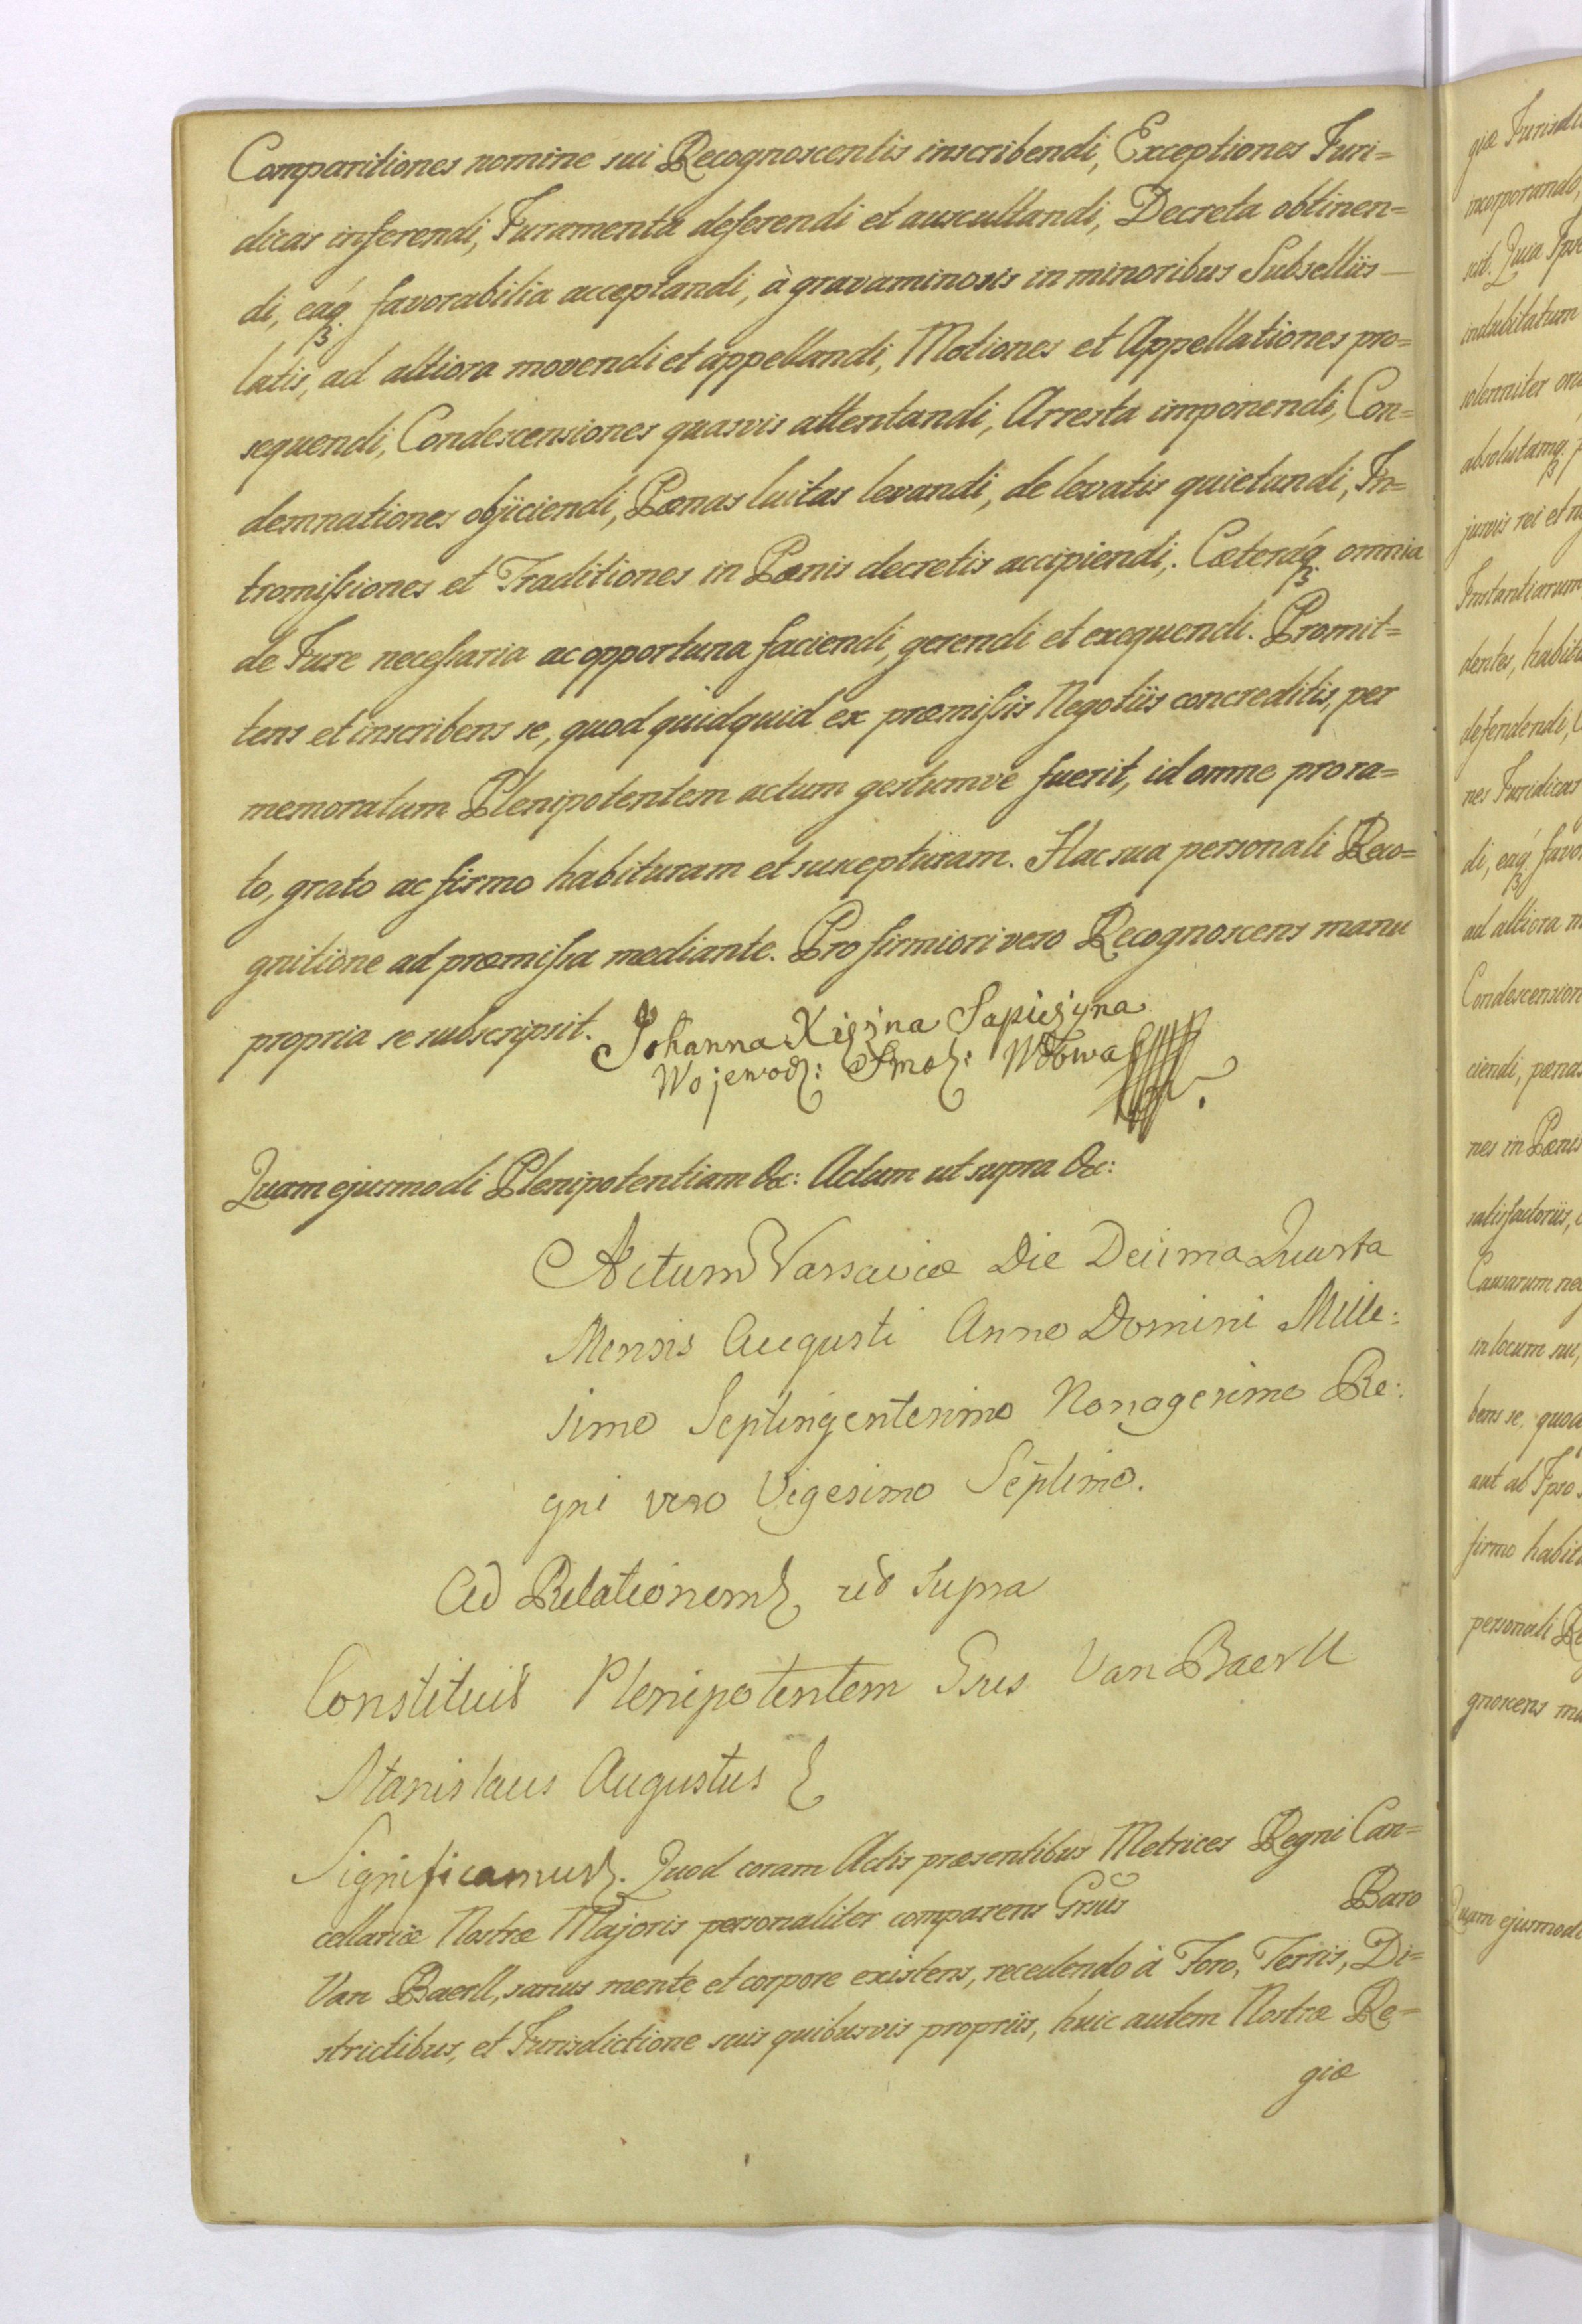 Comparitiones nomine sui Recognoscentis inscribendi, Exceptiones Juri=
dicas inferendi, Juramenta deferendi et auscultandi, Decreta obtinen=
di, eáq₃ favorabilia acceptandi, à gravaminosis in minoribus Subselliis
latis, ad altiora movendi et appellandi, Motiones et Appellationes pro=
sequendi, Condescensiones quasvis attentandi, Arresta imponendi, Con=
demnationes objiciendi, Pœnas luitas levandi, de levatis quietandi, In=
tromissiones et Traditiones in Pœnis decretis accipiendi; Cæteráq₃ omnia
de Jure necessaria ac opportuna faciendi, gerendi et exequendi. Promit=
tens et inscribens se, quod quidquid ex præmissis Negotiis concreditis, per
memoratum Plenipotentem actum gestumve fuerit, id omne pro ra=
to, grato ac firmo habituram et suscepturam. Hac sua personali Reco=
gnitione ad præmissa mediante. Pro firmiori vero Recognoscens manu
propria se subscripsit. Johanna Xiężna Sapieżyna
Wojewodz: Smol: Wdowa
Quam ejusmodi Plenipotentiam &c: Actum ut supra &c:
Actum Varsaviæ Die Decima Quarta
Mensis Augusti Anno Domini Mille:
simo Septingentesimo Nonagesimo Re:
gni vero Vigesimo Septimo.
Ad Relationem ut supra
Constituit Plenipotentem Gsus Van Baerll
Stanislaus Augustus
Significamus. Quod coram Actis præsentibus Metrices Regni Can=
cellariæ Nostræ Majoris personaliter comparens Grsus Baro
Van Baerll, sanus mente et corpore existens, recedendo à Foro, Terris, Di=
strictibus, et Jurisdictione suis quibusvis propriis, huic autem Nostræ Re=
giæ